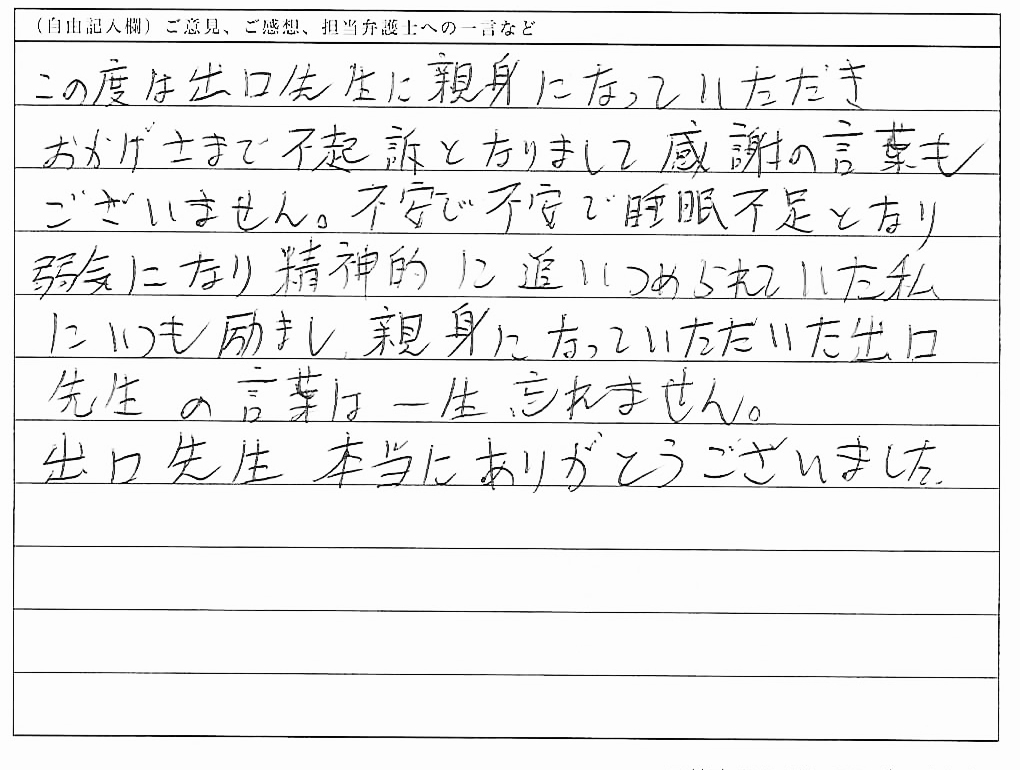 （自由記入欄）ご意見、ご感想、担当弁護士への一言など
この度は出口先生に親身になっていただき
おかげさまで不起訴となりまして感謝の言葉も
ございません。不安で不安で睡眠不足となり
弱気になり精神的に追いつめられていた私
にいつも励まし、親身になっていただいた出口
先生の言葉は一生忘れません。
出口先生本当にありがとうございました。